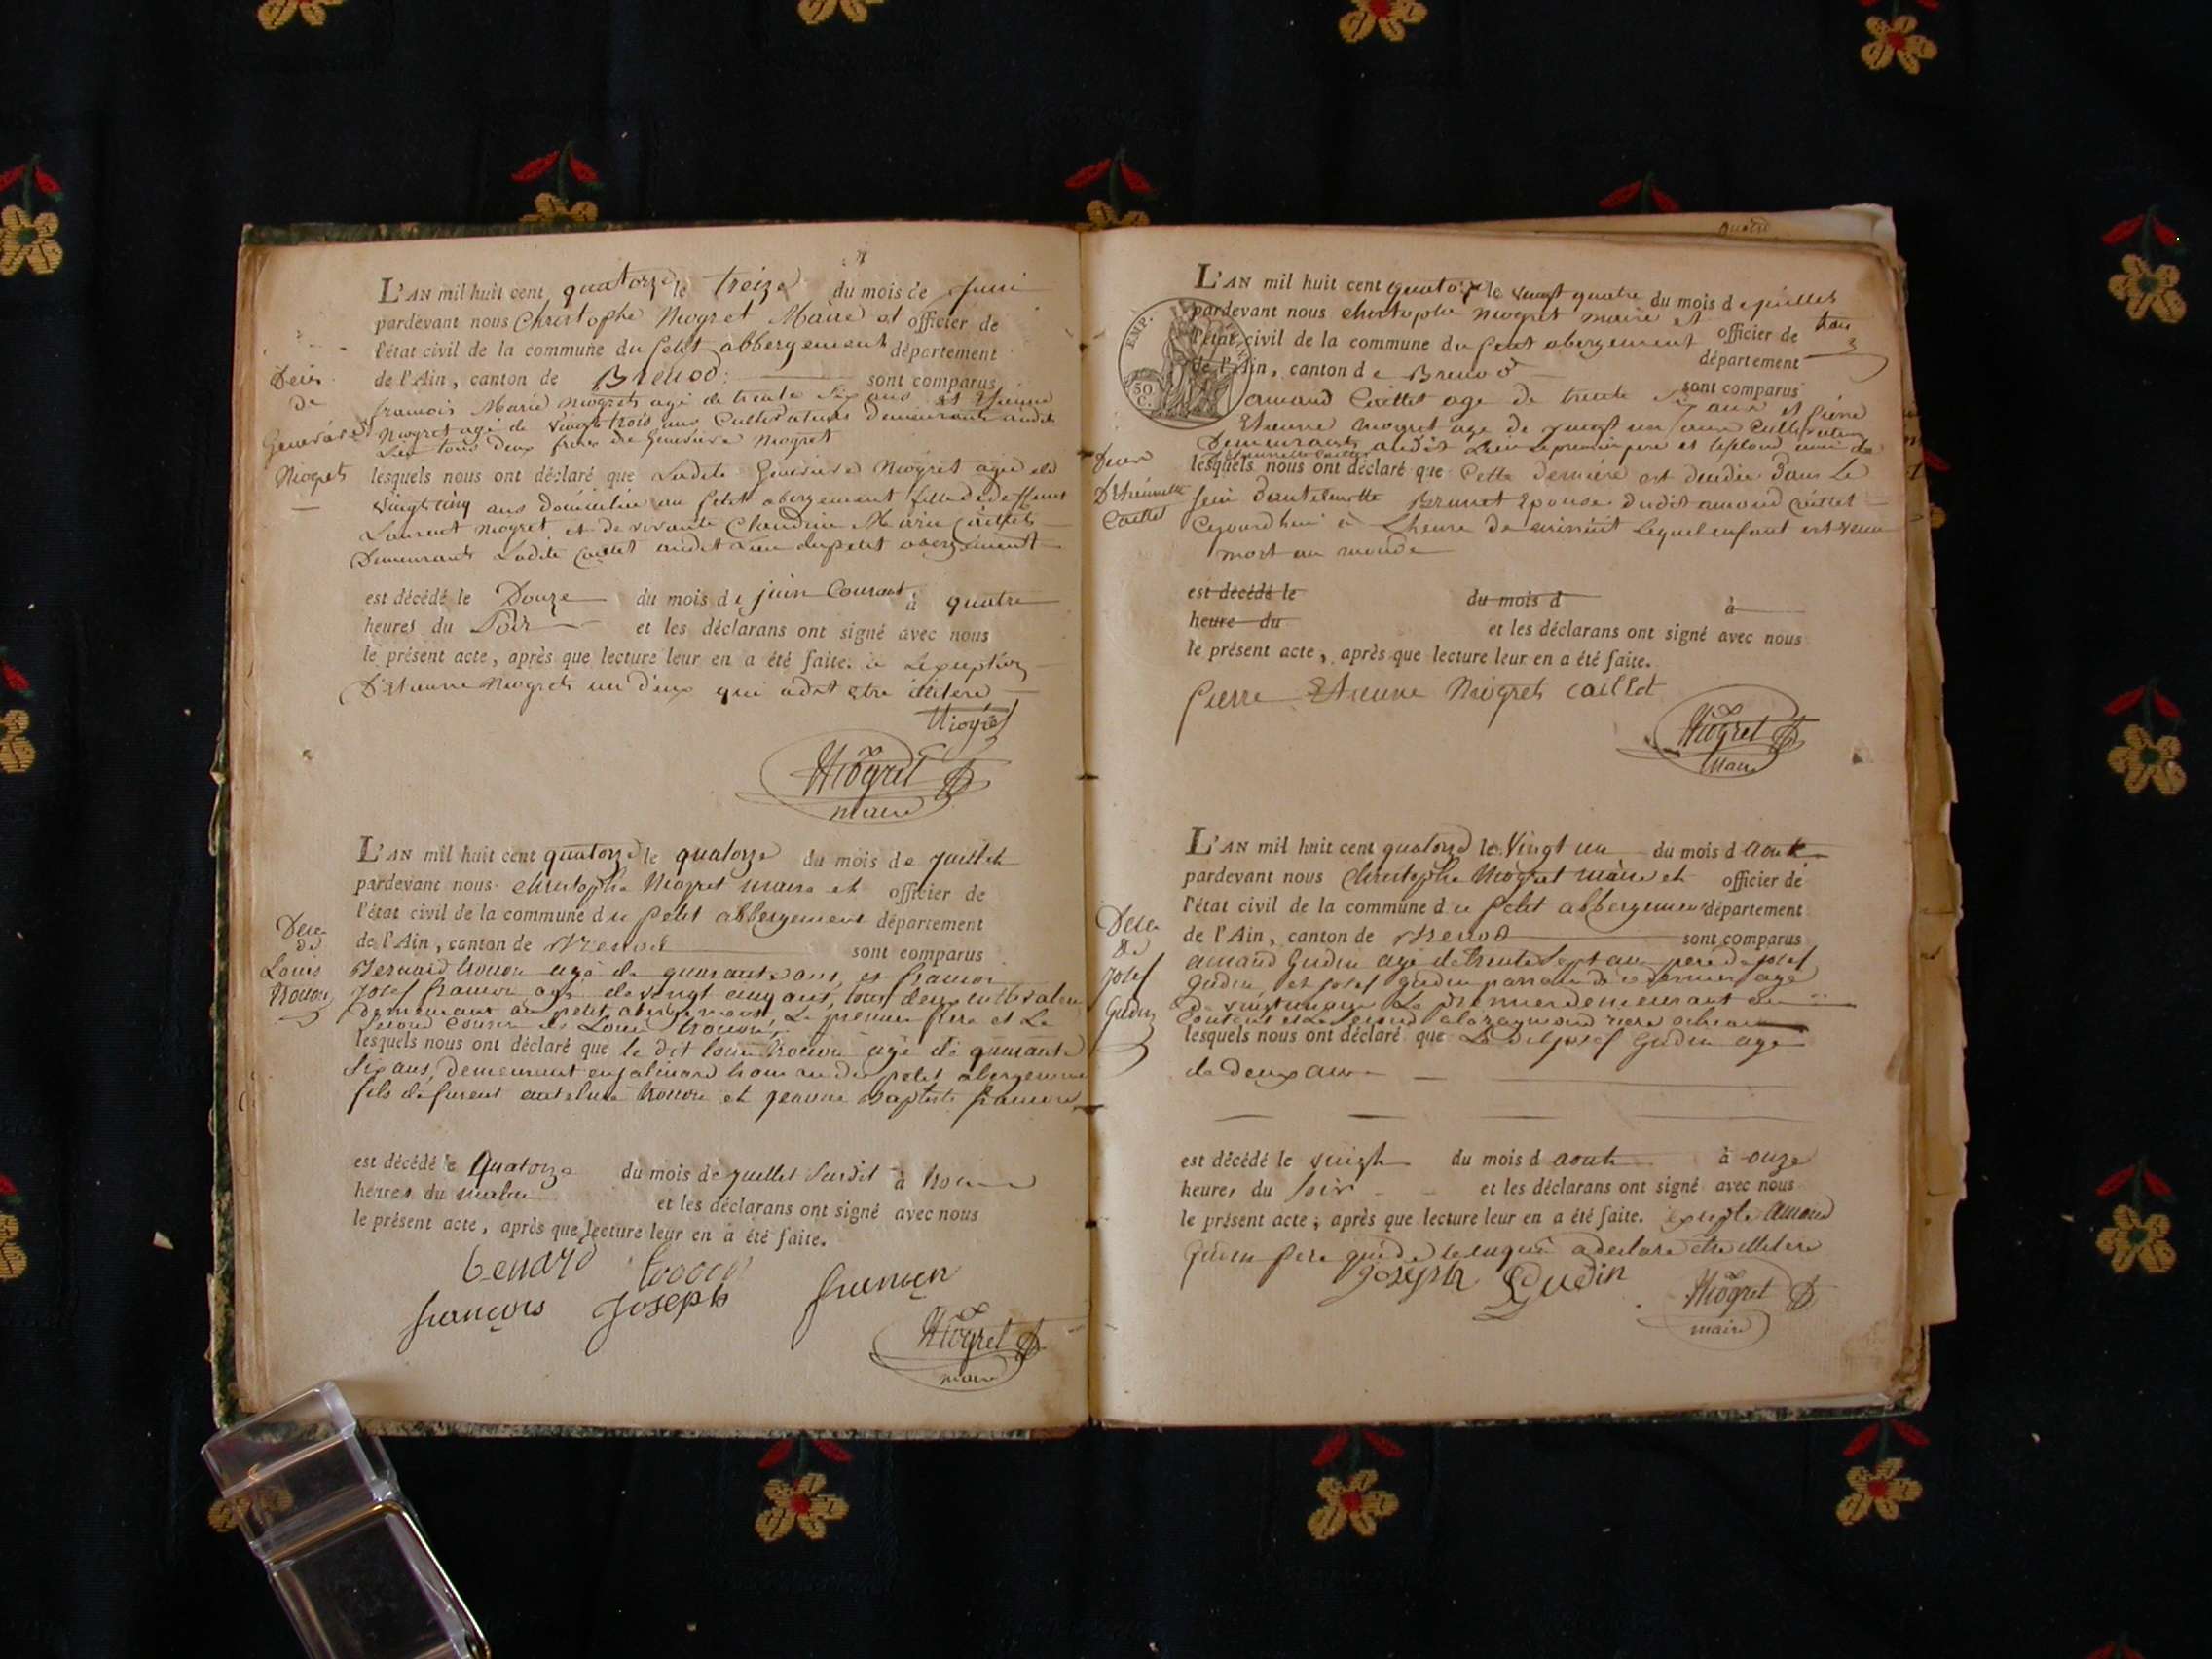 L'AN mil huit cent quatorze le treize du mois de Juin
pardevant nous Christophe Niogret Maire et officier de
l'état civil de la commune du petit abbergement département
de l'Ain, canton de Brenod sont comparus
francois Marie Niogret agé de trente six ans et Etienne
Niogret agé de vingt trois ans Cultivateurs demeurants audit
Lieu tous deux freres de Genevieve Niogret
Décès
de
Genevieve
Niogret
lesquels nous ont déclaré que Ladite Genevieve Niogret agée de
vingt cinq ans domiciliée au petit abergement fille de deffunt
Laurent Niogret et de vivante Claudine Marie Caillet
Demeurante Ladite Caillet audit Lieu du petit abergement
est décédé le Douze du mois de juin Courant à quatre
heures du Soir et les déclarans ont signé avec nous
le présent acte, après que lecture leur en a été faite. a Lexeption
D'Etienne Niogret un d'eux qui a dit etre illitere
Niogret
Niogret
maire
L'AN mil huit cent quatorze le quatorze du mois de juillet
pardevant nous Christophe Niogret maire et officier de
l'état civil de la commune du petit abbergement département
de l'Ain, canton de Brenod sont comparus
Décès
de
Louis
agé de quarante ans, et
Josef agé de vingt cinq ans, tous deux cultivateurs
demeurant au petit abergement, Le premier frere et Le
Second Cousin de Louis
lesquels nous ont déclaré que le dit Louis agé de quarante
Six ans, demeurant du petit abergement
fils de furent et jeanne Baptiste
est décédé le Quatorze du mois de juillet Susdit à
heures du matin et les déclarans ont signé avec nous
le présent acte, après que lecture leur en a été faite.
benard
françois Joseph
Niogret
maire
L'AN mil huit cent quatorze le vingt quatre du mois de juillet
pardevant nous christophe Niogret maire et officier de
l'état civil de la commune du petit abergement département
de l'Ain, canton de Brenod sont comparus
EMP.
50
C.
amand Caillet age de trente six ans et pierre
Etienne Niogret age de vingt un ans Cultivateurs
Demeurants audit Lieu Le premier pere et le second ami de
Caillet
lesquels nous ont déclaré que Cette derniere est decedée dans Le
sein Brunet Epouse dudit amand Caillet
Cejourdhui à Lheure de minuit Lequel enfant est venu
mort au monde
est décédé le du mois d à
heure du et les déclarans ont signé avec nous
le présent acte, après que lecture leur en a été faite.
pierre Etienne Niogret caillet
Niogret
Maire
L'AN mil huit cent quatorze le Vingt un du mois d Aout
pardevant nous Christophe Niogret maire et officier de
l'état civil de la commune du petit abbergement département
de l'Ain, canton de Brenod sont comparus
Décès
de
Josef
Gudin
amand Gudin agé de trente Sept ans pere de josef
Gudin, et josef Gudin parrain de ce dernier agé
Le premier demeurant au
lesquels nous ont déclaré que Le dit josef Gudin agé
de deux ans
est décédé le vingt du mois d aout à onze
heures du soir et les déclarans ont signé avec nous
le présent acte, après que lecture leur en a été faite. excepte Amand
Gudin pere a declaré etre illitere
joseph Gudin
Niogret
maire